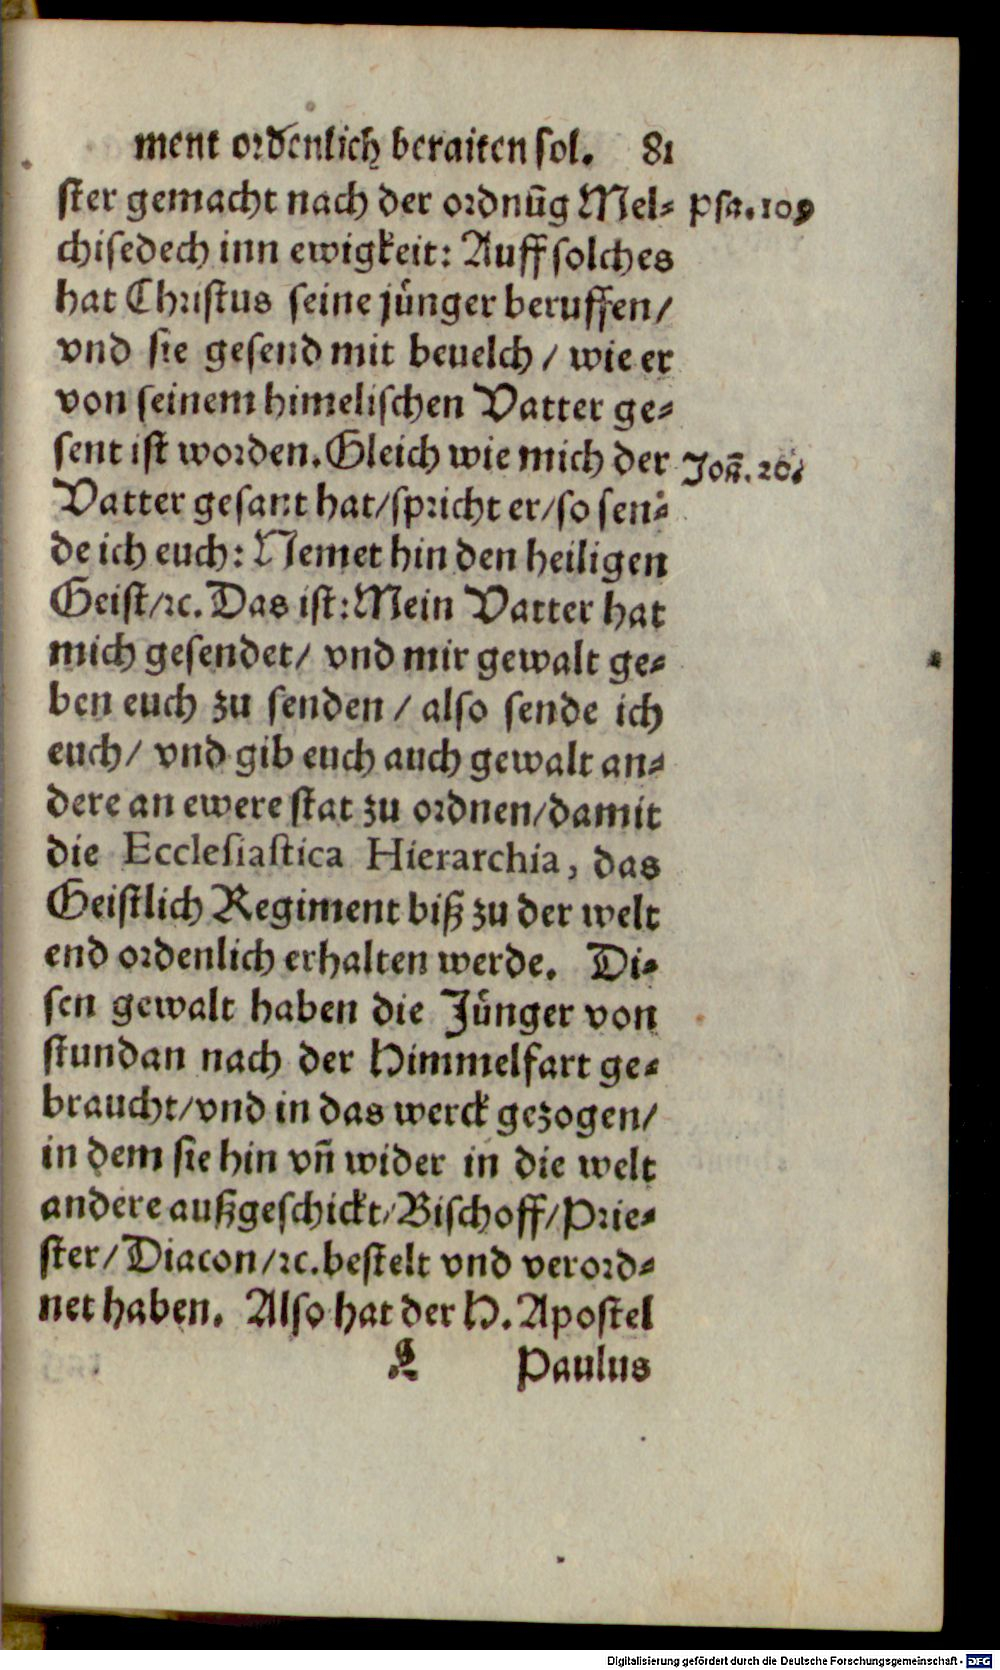 ment ordenlich beraiten sol. 81
ster gemacht nach der ordnūg Mel⸗
Psa. 109
chisedech inn ewigkeit: Auff solches
hat Christus seine jünger beruffen/
vnd sie gesend mit beuelch / wie er
von seinem himelischen Vatter ge⸗
sent ist worden. Gleich wie mich der
Joā. 20.
Vatter gesant hat/spricht er/so sen⸗
de ich euch: Nemet hin den heiligen
Geist/ꝛc. Das ist: Mein Vatter hat
mich gesendet/ vnd mir gewalt ge⸗
ben euch zu senden / also sende ich
euch/ vnd gib euch auch gewalt an⸗
dere an ewere stat zu ordnen/damit
die Ecclesiastica Hierarchia, das
Geistlich Regiment biß zu der welt
end ordenlich erhalten werde. Di⸗
sen gewalt haben die Jünger von
stundan nach der Himmelfart ge⸗
braucht/vnd in das werck gezogen/
in dem sie hin vñ wider in die welt
andere außgeschickt/Bischoff/Prie⸗
ster/Diacon/ꝛc.bestelt vnd verord⸗
net haben. Also hat der H. Apostel
L Paulus
Digitalisierung gefördert durch die Deutsche Forschungsgemeinschaft - DFG